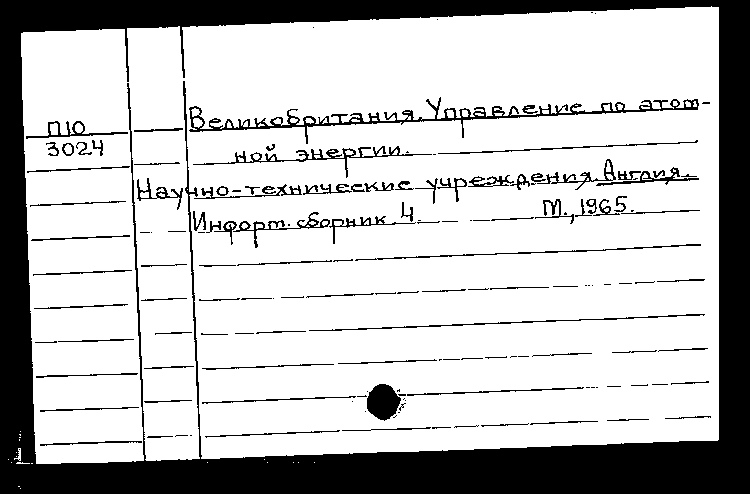 П10
3024
Великобритания. Управление по атом-
ной энергии.
Научно-технические учреждения. Англия.
Информ. сборник 4. М., 1965.